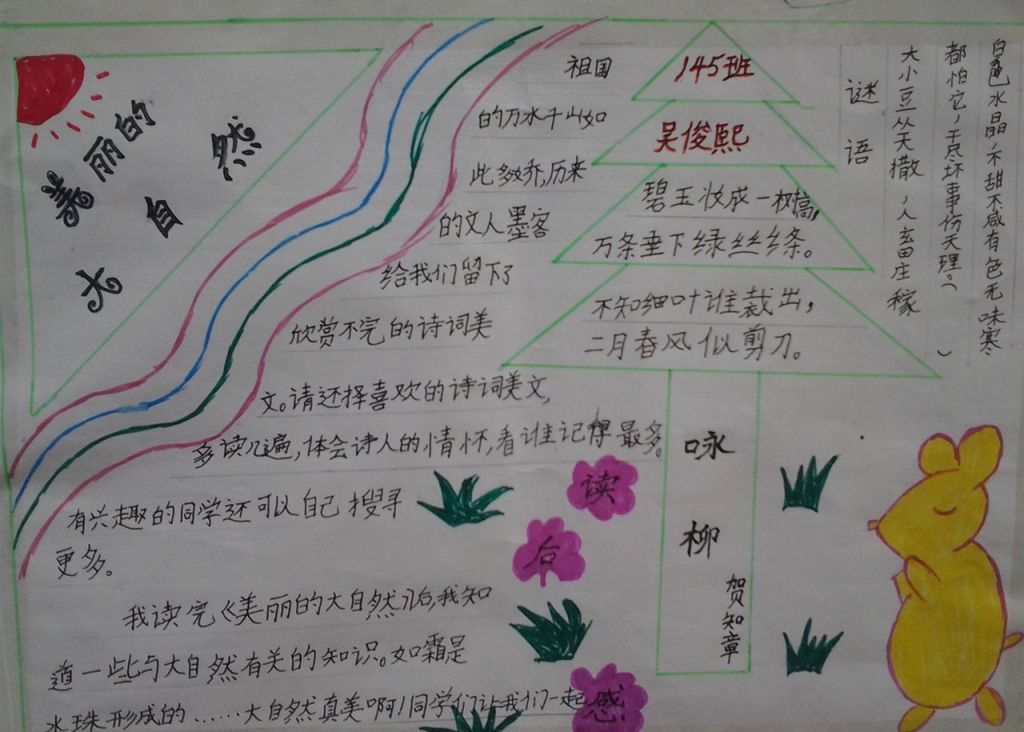 美丽的
大自然
祖国
的万水千山如
此多娇,历来
的文人墨客
给我们留下了
欣赏不完的诗词美
文。请还择喜欢的诗词美文,
多读几遍,体会诗人的情怀,看谁记得最多。
有兴趣的同学还可以自己搜寻
更多。
我读完《美丽的大自然》后,我知
道一些与大自然有关的知识。如霜是
水珠形成的……大自然真美啊!同学们让我们一起
读
后
感
145班
吴俊熙
碧玉妆成一树高,
万条垂下绿丝绦。
不知细叶谁裁出,
二月春风似剪刀。
咏柳
贺知章
谜语
大小豆从天撒,人畜庄稼
都怕它,干尽坏事伤天理。( )
白色水晶,不甜不咸有色无味寒